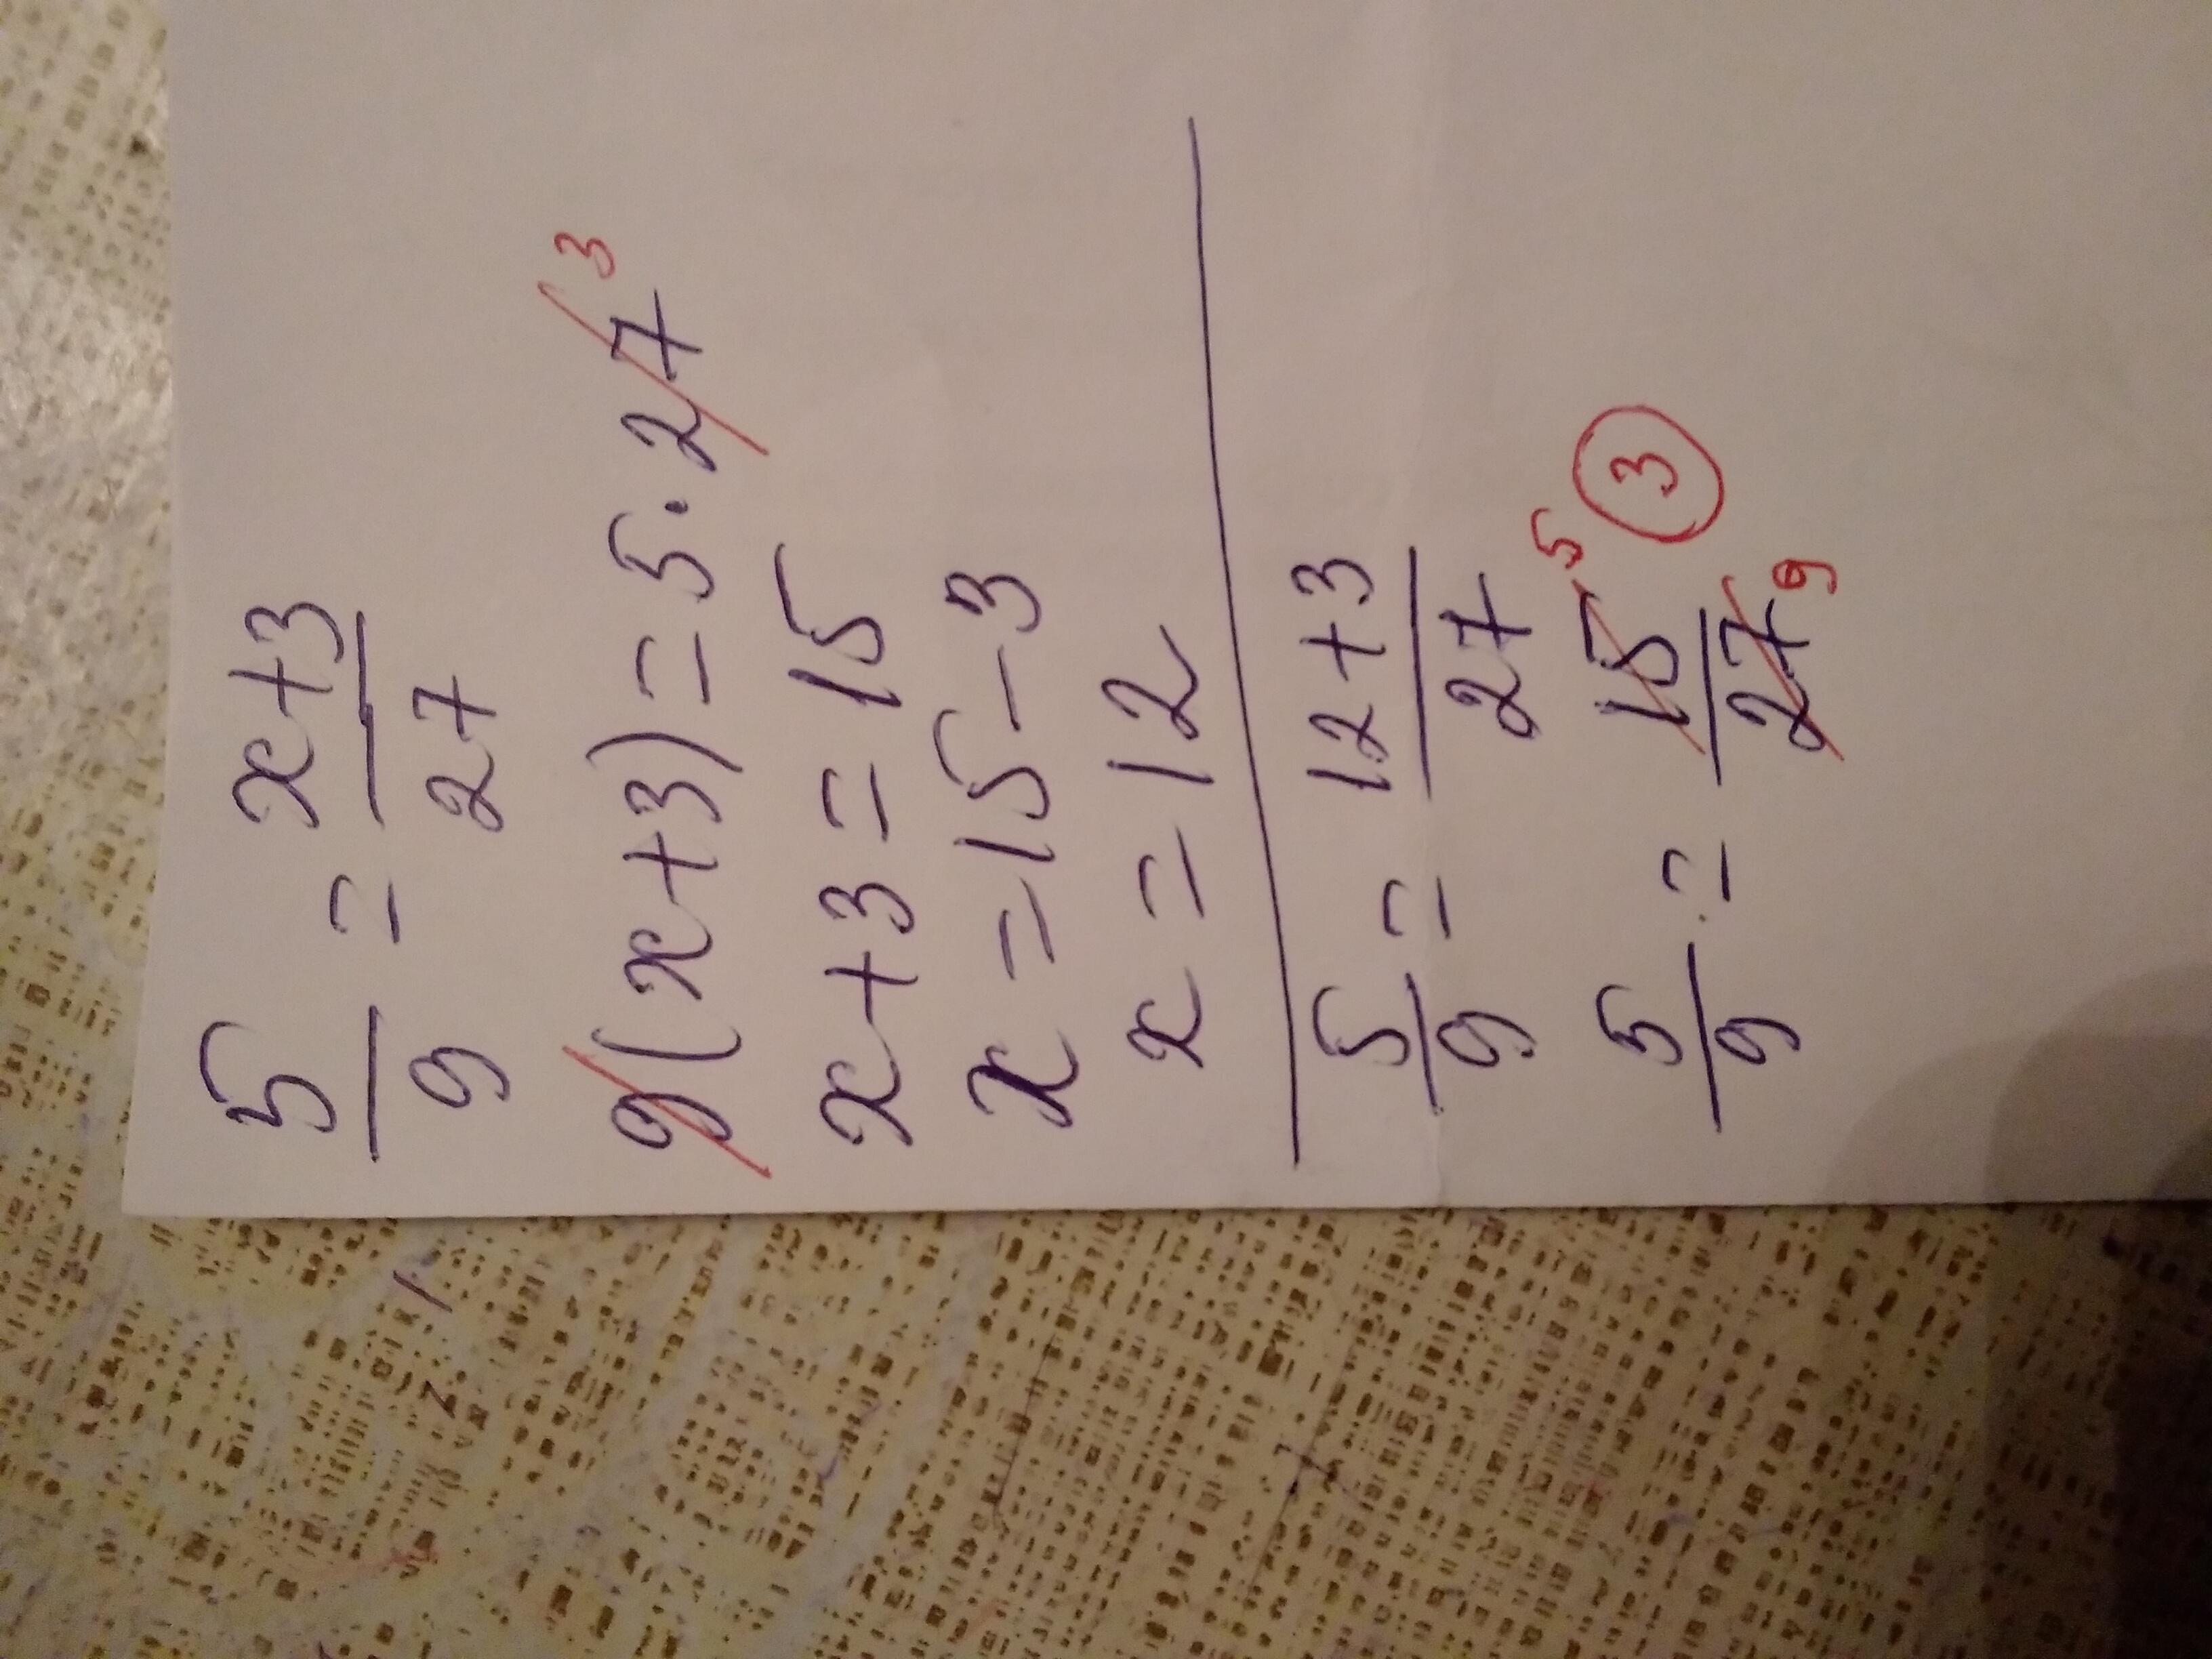 5/9 = x+3/27
9(x+3) = 5·27 3
x+3 = 15
x = 15-3
x = 12
5/9 = 12+3/27
5/9 = 15/27 5 9 3